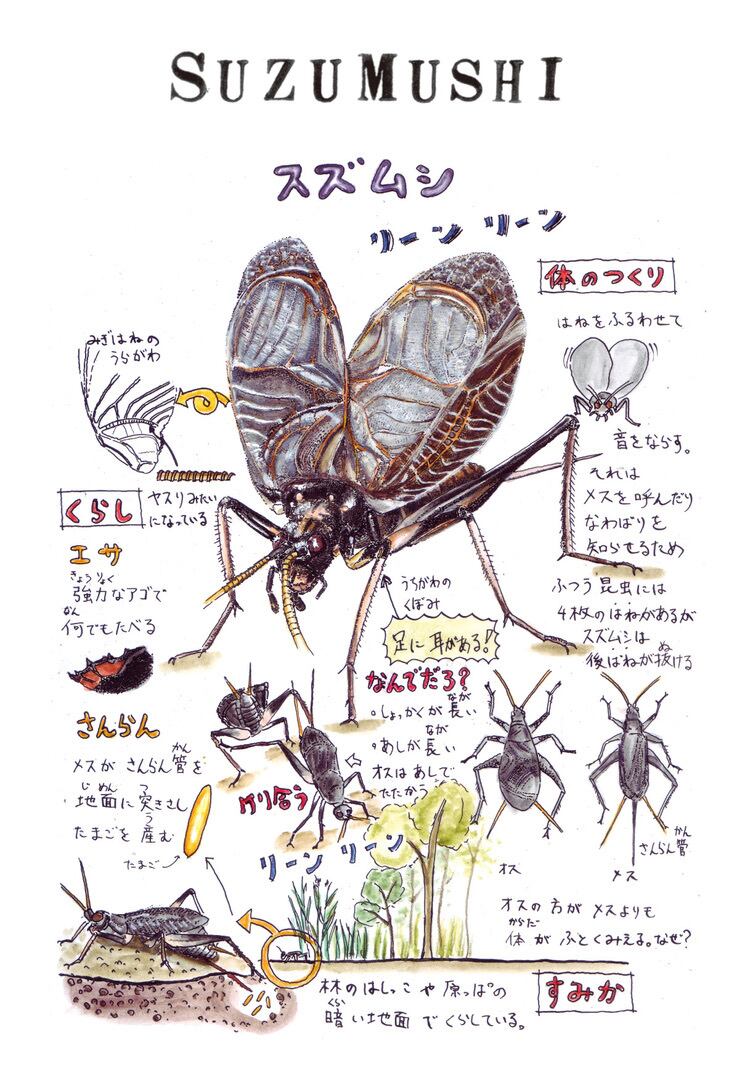 SUZUMUSHI
スズムシ
リーン リーン
体のつくり
はねをふるわせて
音をならす。
それは
メスを呼んだり
なわばりを
知らせるため
ふつう昆虫には
4枚のはねがあるが
スズムシは
ぬ
後ばねが抜ける
みぎはねの
うらがわ
ヤスリみたい
になっている
くらし
エサ
きょうりょく
強力なアゴで
なん
何でもたべる
うちがわの
くぼみ
足に耳がある!
なんでだろ?
なが
・しょっかくが長い
なが
・あしが長い
オスはあしで
たたかう
ケリ合う
さんらん
かん
メスがさんらん管を
じめん つ
地面に突きさし
う
たまごを産む
たまご
リーン リーン
オス
かん
さんらん管
メス
オスの方がメスよりも
からだ
体がふとくみえる。なぜ?
すみか
林のはしっこや原っぱの
くら
暗い地面でくらしている。